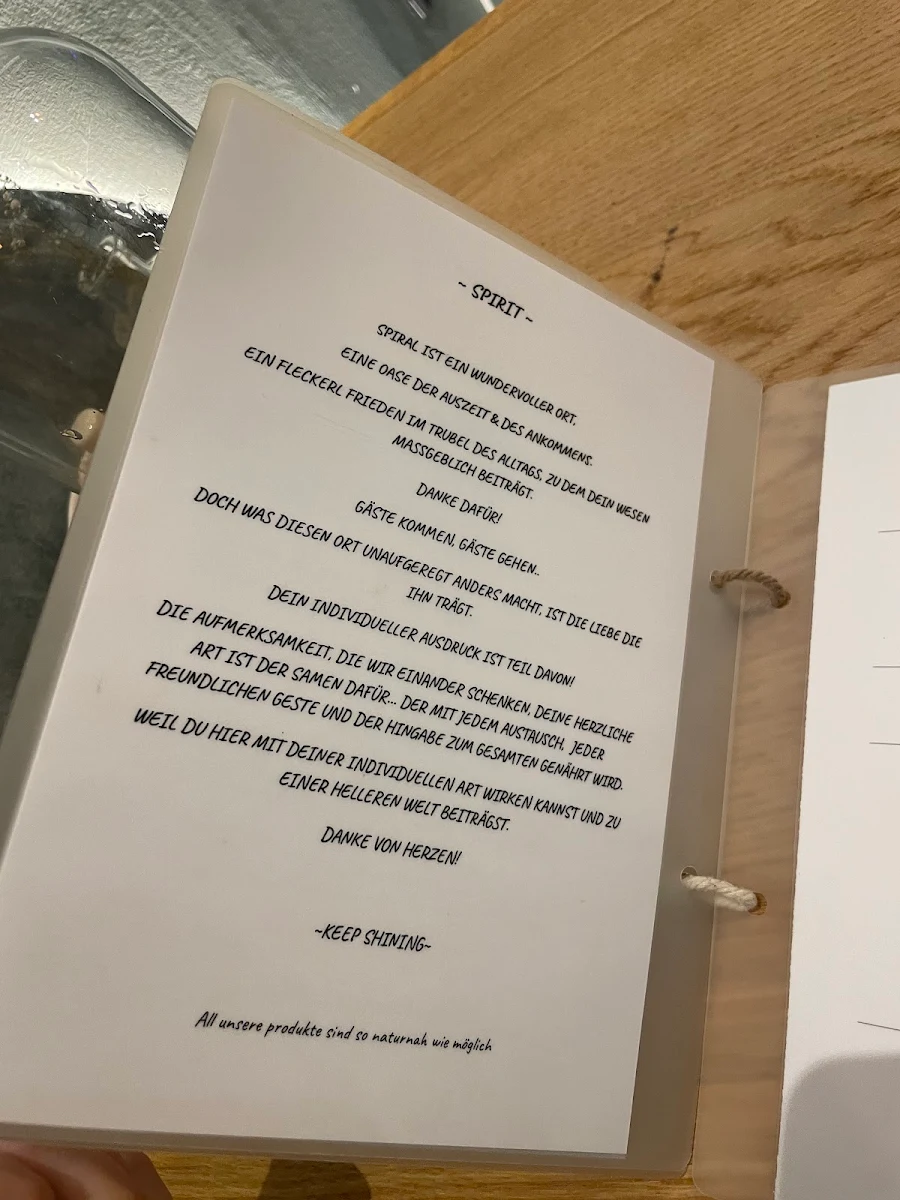 ~ SPIRIT ~
SPIRAL IST EIN WUNDERVOLLER ORT,
EINE OASE DER AUSZEIT & DES ANKOMMENS.
EIN FLECKERL FRIEDEN IM TRUBEL DES ALLTAGS, ZU DEM DEIN WESEN
MASSGEBLICH BEITRÄGT.
DANKE DAFÜR!
GÄSTE KOMMEN, GÄSTE GEHEN..
DOCH WAS DIESEN ORT UNAUFGEREGT ANDERS MACHT, IST DIE LIEBE DIE
IHN TRÄGT.
DEIN INDIVIDUELLER AUSDRUCK IST TEIL DAVON!
DIE AUFMERKSAMKEIT, DIE WIR EINANDER SCHENKEN, DEINE HERZLICHE
ART IST DER SAMEN DAFÜR... DER MIT JEDEM AUSTAUSCH, JEDER
FREUNDLICHEN GESTE UND DER HINGABE ZUM GESAMTEN GENÄHRT WIRD.
WEIL DU HIER MIT DEINER INDIVIDUELLEN ART WIRKEN KANNST UND ZU
EINER HELLEREN WELT BEITRÄGST.
DANKE VON HERZEN!
~KEEP SHINING~
All unsere produkte sind so naturnah wie möglich